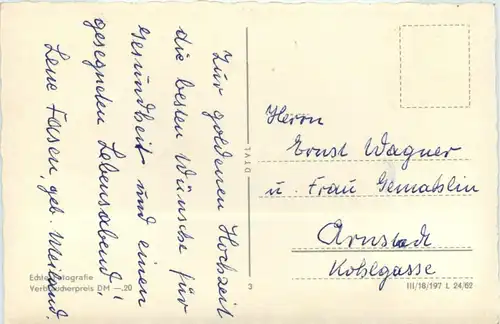 Zur goldenen Hochzeit
die besten Wünsche für
Gesundheit und einen
gesegneten Lebensabend!
Lene Fasen, geb. Meiland.
Herrn
Ernst Wagner
u. Frau Gemahlin
Arnstadt
Kohlgasse
Echte Fotografie
Verbraucherpreis DM —.20
3
III/18/197 L 24/62